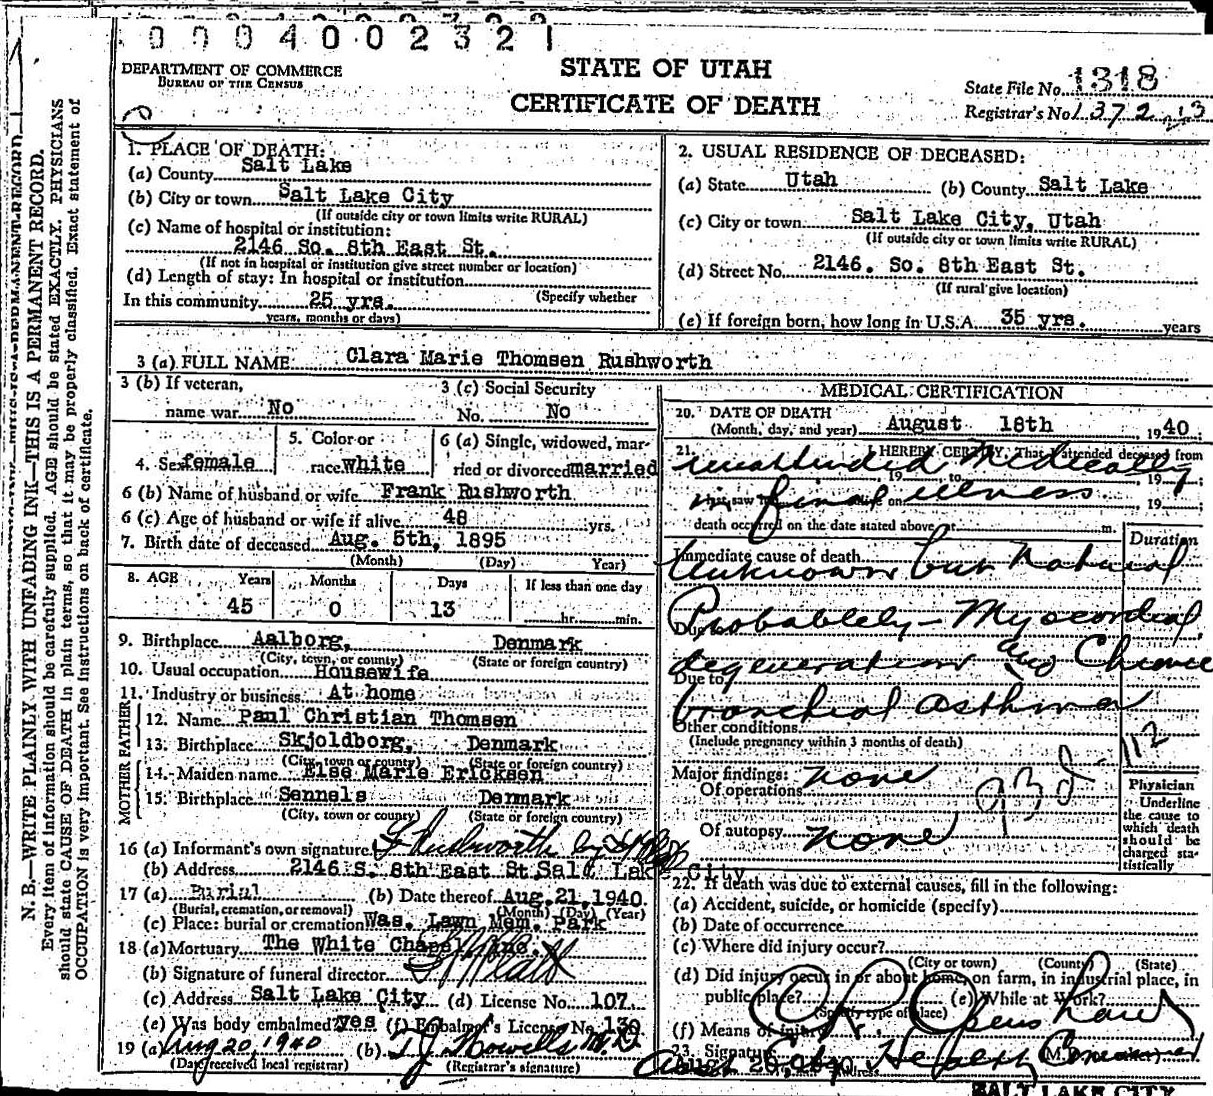 0 0 0 4 0 0 2 3 2 1
DEPARTMENT OF COMMERCE
BUREAU OF THE CENSUS
STATE OF UTAH
CERTIFICATE OF DEATH
State File No. 1318
Registrar's No. 1372
N. B.—WRITE PLAINLY WITH UNFADING INK—THIS IS A PERMANENT RECORD.
Every item of information should be carefully supplied. AGE should be stated EXACTLY. PHYSICIANS
should state CAUSE OF DEATH in plain terms, so that it may be properly classified. Exact statement of
OCCUPATION is very important. See instructions on back of certificate.
1. PLACE OF DEATH:
(a) County Salt Lake
(b) City or town Salt Lake City
(If outside city or town limits write RURAL)
(c) Name of hospital or institution:
2146 So. 8th East St.
(If not in hospital or institution give street number or location)
(d) Length of stay: In hospital or institution
(Specify whether
In this community 25 yrs.
years, months or days)
2. USUAL RESIDENCE OF DECEASED:
(a) State Utah (b) County Salt Lake
(c) City or town Salt Lake City, Utah
(If outside city or town limits write RURAL)
(d) Street No. 2146. So. 8th East St.
(If rural give location)
(e) If foreign born, how long in U.S.A. 35 yrs. years
3 (a) FULL NAME Clara Marie Thomsen Rushworth
3 (b) If veteran,
name war No
3 (c) Social Security
No. No
4. Sex female
5. Color or
race white
6 (a) Single, widowed, mar-
ried or divorced married
6 (b) Name of husband or wife Frank Rushworth
6 (c) Age of husband or wife if alive 48 yrs.
7. Birth date of deceased Aug. 5th, 1895
(Month) (Day) Year)
8. AGE Years Months Days If less than one day
45 0 13 hr. min.
9. Birthplace Aalborg, Denmark
(City, town, or county) (State or foreign country)
10. Usual occupation Housewife
11. Industry or business At home
FATHER
12. Name Paul Christian Thomsen
13. Birthplace Skjoldborg, Denmark
(City, town or county) (State or foreign country)
MOTHER
14. Maiden name Else Marie Ericksen
15. Birthplace Sennels Denmark
(City, town or county) (State or foreign country)
16 (a) Informant's own signature F Rushworth by
(b) Address 2146 S. 8th East St Salt Lake City
17 (a) Burial (b) Date thereof Aug. 21, 1940
(Burial, cremation, or removal) (Month) (Day) (Year)
(c) Place: burial or cremation Was. Lawn Mem. Park
18 (a) Mortuary The White Chapel, Inc.
(b) Signature of funeral director
(c) Address Salt Lake City (d) License No. 107
(e) Was body embalmed? yes (f) Embalmer's License No. 130
19 (a) Aug 20, 1940 (b) T J Howells M.D
(Date received local registrar) (Registrar's signature)
MEDICAL CERTIFICATION
20. DATE OF DEATH
(Month, day, and year) August 18th, 1940
21. I HEREBY CERTIFY, That I attended deceased from
unattended Medically
in final illness
death occurred on the date stated above at m.
Duration
Immediate cause of death
Unknown but Natural
Due to Probablely - Myocordial
degeneration and Chronic
Due to
bronchial asthma
Other conditions
(Include pregnancy within 3 months of death)
112
Major findings:
Of operations none
93d
Of autopsy none
Physician
Underline
the cause to
which death
should be
charged sta-
tistically
22. If death was due to external causes, fill in the following:
(a) Accident, suicide, or homicide (specify)
(b) Date of occurrence
(c) Where did injury occur?
(City or town) (County) (State)
(d) Did injury occur in or about home, on farm, in industrial place, in
public place? (e) While at Work?
(Specify type of place)
(f) Means of injury
23. Signature
Health Com
Address
SALT LAKE CITY